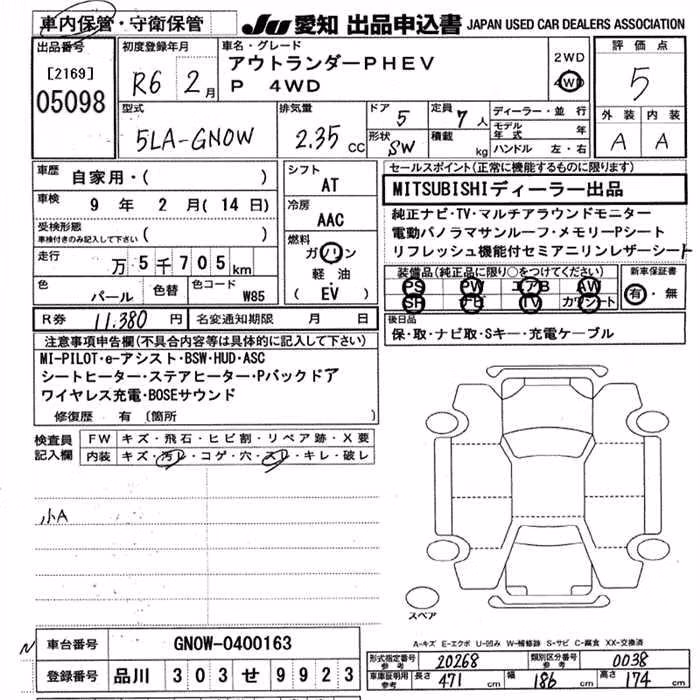 車内保管・守衛保管 JU 愛知 出品申込書 JAPAN USED CAR DEALERS ASSOCIATION
出品番号 初度登録年月 車名・グレード 評価点
[2169] R6 2月 アウトランダーPHEV 2WD
05098 P 4WD 4WD 5
型式 排気量 ドア 定員 ディーラー・並行 外装 内装
5LA-GN0W 2.35 CC 5 7人 モデル年式 年 A A
形状 SW 積載 kg ハンドル 左・右
車歴 自家用・( ) シフト セールスポイント(正常に機能するものに限ります)
AT MITSUBISHIディーラー出品
車検 9年 2月(14日) 冷房 純正ナビ・TV・マルチアラウンドモニター
AAC 電動パノラマサンルーフ・メモリーPシート
受検形態 車検付きのみ記入して下さい ( ) リフレッシュ機能付セミアニリンレザーシート
走行 万5千705km 燃料 ガソリン 装備品(純正品に限り○をつけてください) 新車保証書
軽油 PS PW エアB AW
色 パール 色替 色コード W85 (EV) SR ナビ TV カワシート 有・無
R券 11,380円 名変通知期限 月 日 後日品
保・取・ナビ取・Sキー・充電ケーブル
注意事項申告欄(不具合内容等は具体的に記入して下さい)
MI-PILOT・e-アシスト・BSW・HUD・ASC
シートヒーター・ステアヒーター・Pバックドア
ワイヤレス充電・BOSEサウンド
修復歴 有 〔箇所 〕
検査員 FW キズ・飛石・ヒビ割・リペア跡・X要
記入欄 内装 キズ・汚レ・コゲ・穴・スレ・キレ・破レ
小A
スペア
A-キズ E-エクボ U-凹み W-補修跡 S-サビ C-腐食 XX-交換済
車台番号 GN0W-0400163
形式指定番号 参考 20268 類別区分番号 参考 0038
登録番号 品川 303 せ 9923
車庫証明用 参考 長さ 471 cm 幅 186 cm 高さ 174 cm